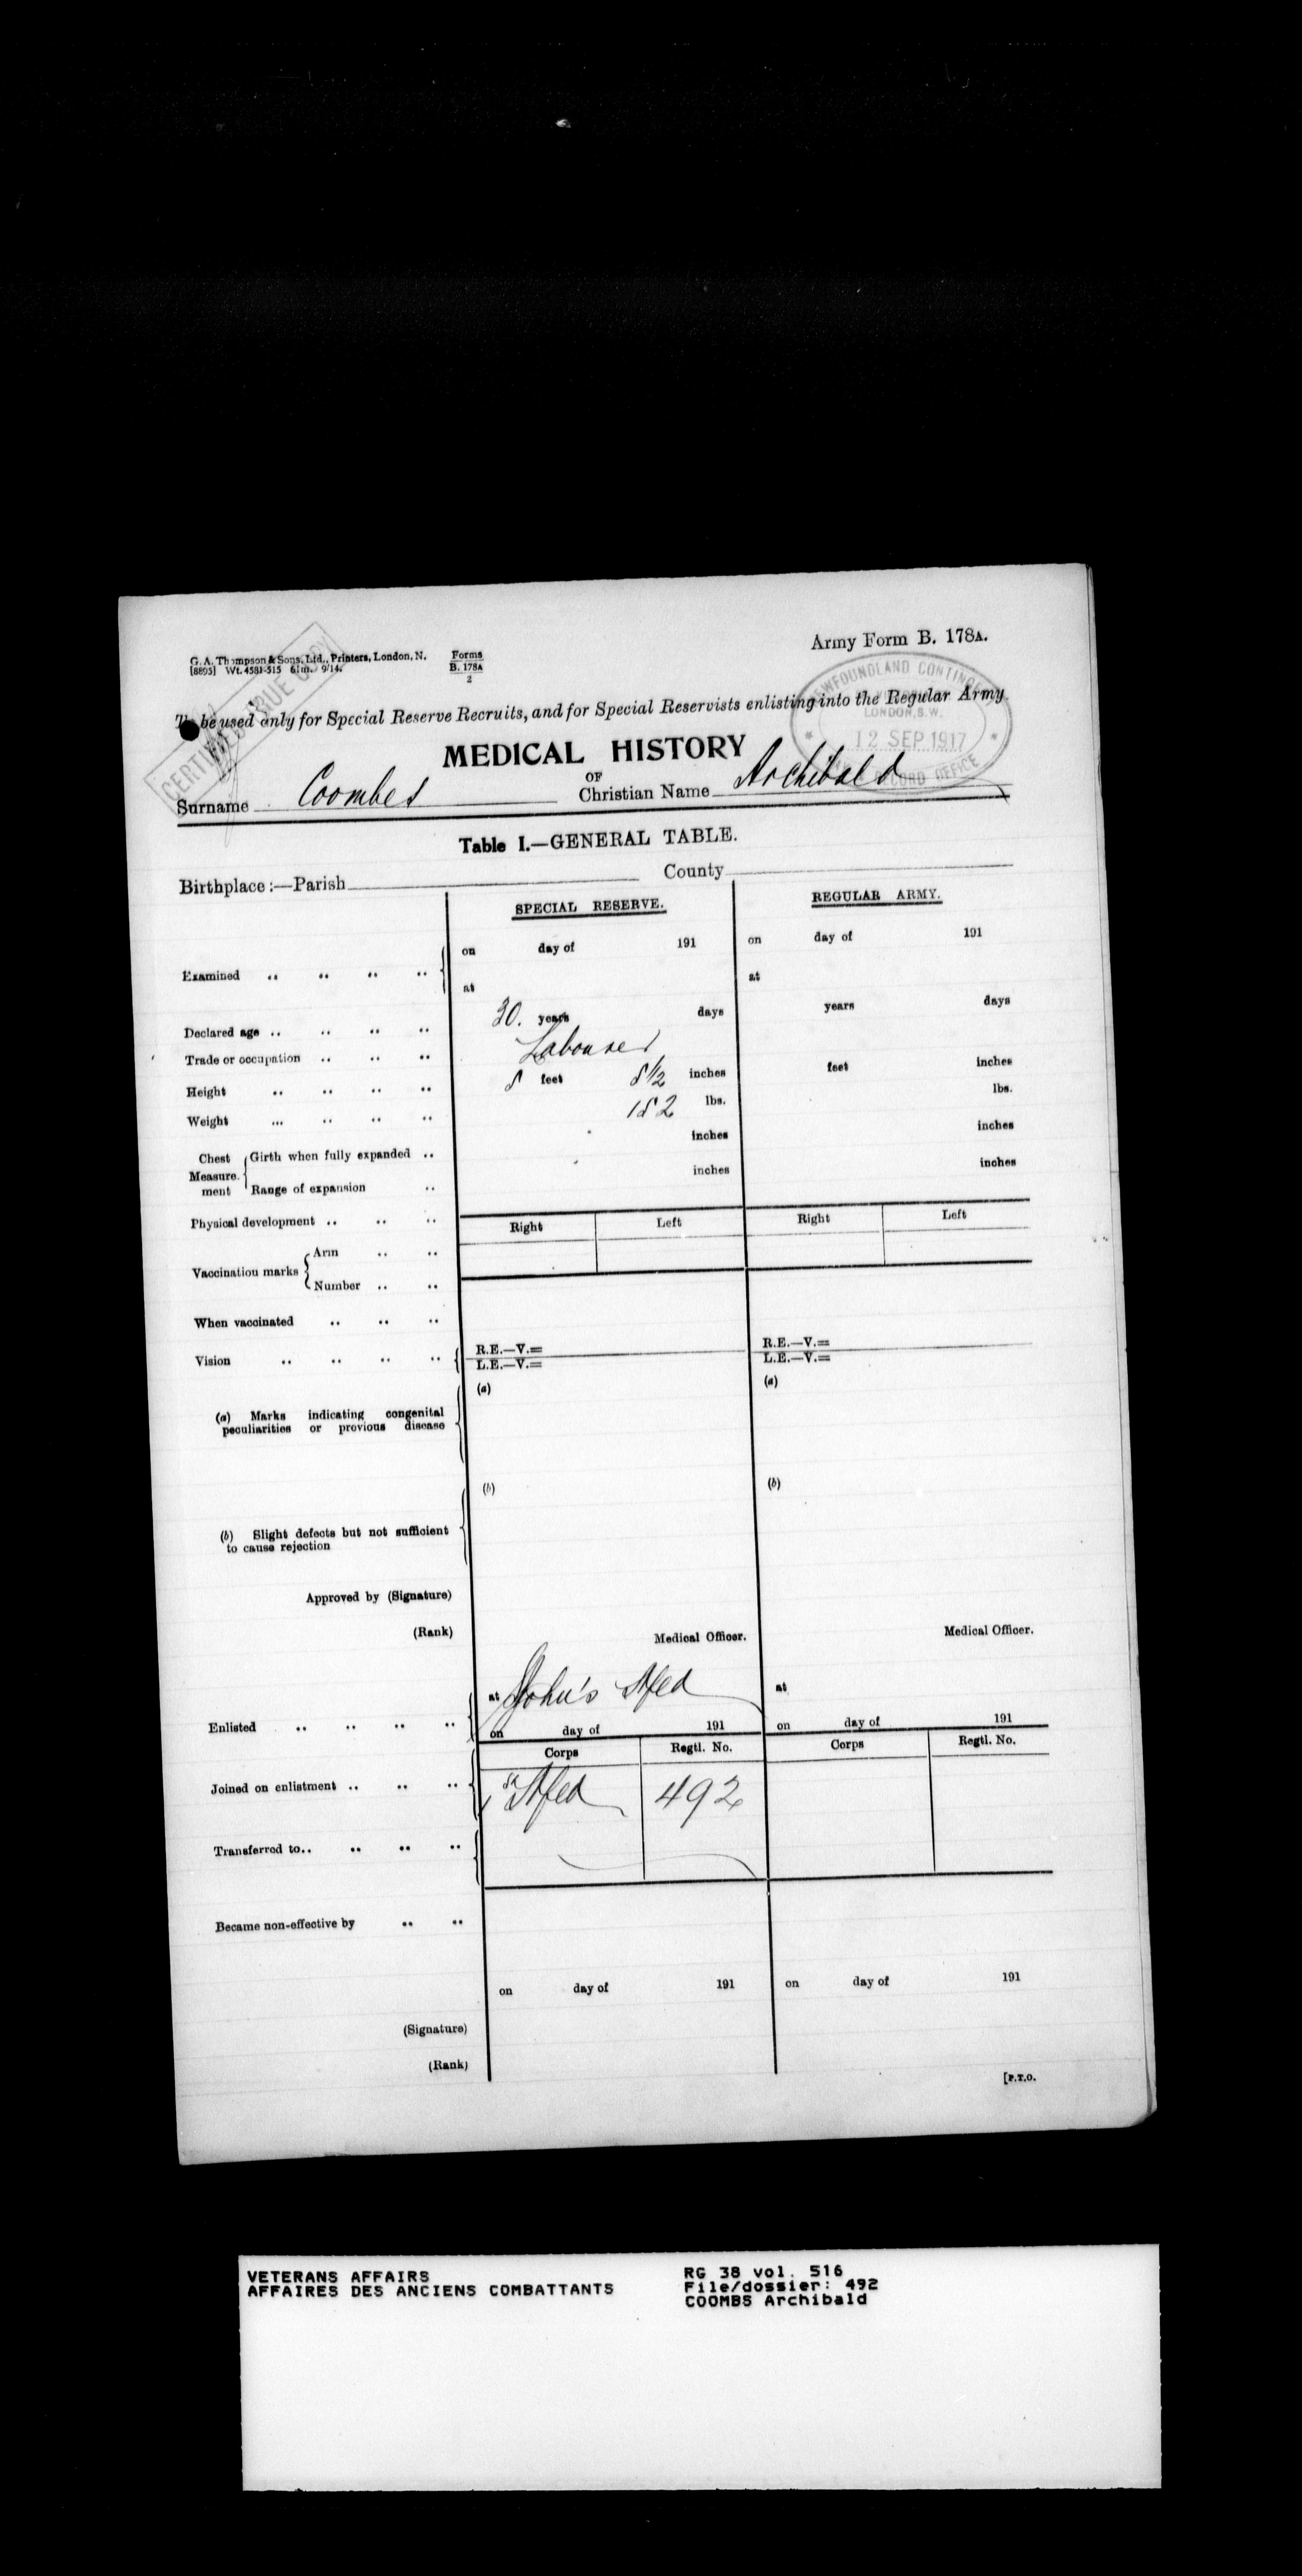 Army Form B. 178A.
G. A. Thompson & Sons, Ltd., Printers, London, N.
[8895] Wt. 4581-515 61m. 9/14.
Forms
B. 178A
2
CERTIFIED TRUE COPY
NEWFOUNDLAND CONTINGENT
LONDON, S.W.
12 SEP 1917
RECORD OFFICE
To be used only for Special Reserve Recruits, and for Special Reservists enlisting into the Regular Army
MEDICAL HISTORY
OF
Surname Coombes Christian Name Archibald
Table I.—GENERAL TABLE.
Birthplace:—Parish County
SPECIAL RESERVE. REGULAR ARMY.
Examined .. .. .. .. on day of 191 on day of 191
at at
Declared age .. .. .. .. 30. years days years days
Trade or occupation .. .. .. Labourer
Height .. .. .. .. 5 feet 5 1/2 inches feet inches
Weight ... .. .. .. 152 lbs. lbs.
Chest Measurement { Girth when fully expanded .. inches inches
Range of expansion .. inches inches
Physical development .. .. ..
Right Left Right Left
Vaccination marks { Arm .. ..
Number .. ..
When vaccinated .. .. ..
Vision .. .. .. .. R.E.—V.= R.E.—V.=
L.E.—V.= L.E.—V.=
(a) Marks indicating congenital peculiarities or previous disease (a) (a)
(b) Slight defects but not sufficient to cause rejection (b) (b)
Approved by (Signature)
(Rank) Medical Officer. Medical Officer.
Enlisted .. .. .. .. at St John's Nfld at
on day of 191 on day of 191
Corps Regtl. No. Corps Regtl. No.
Joined on enlistment .. .. .. 1st Nfld 492
Transferred to.. .. .. ..
Became non-effective by .. ..
on day of 191 on day of 191
(Signature)
(Rank)
[P.T.O.
VETERANS AFFAIRS
AFFAIRES DES ANCIENS COMBATTANTS
RG 38 vol. 516
File/dossier: 492
COOMBS Archibald